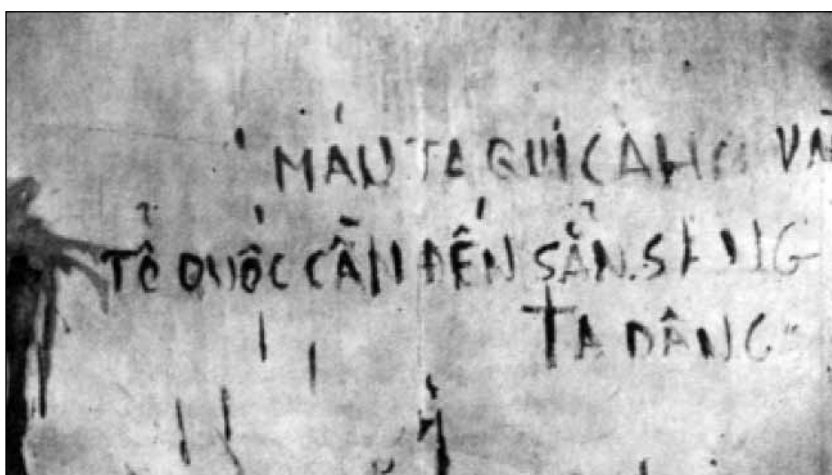 MÁU TA QUÍ CÀNG
TỔ QUỐC CẦN ĐẾN SẴN SÀNG
TA DÂNG"